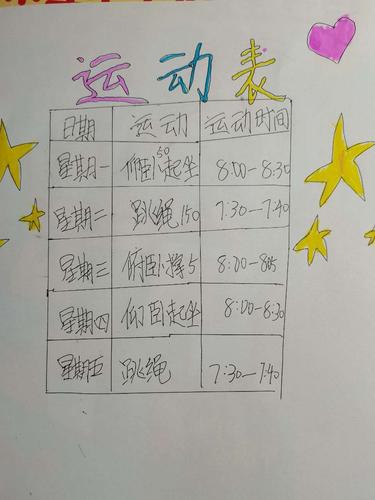 运动表
日期 运动 运动时间
星期一 仰卧起坐50 8:00-8:30
星期二 跳绳150 7:30-7:40
星期三 俯卧撑5 8:00-805
星期四 仰卧起坐 8:00-8:30
星期五 跳绳 7:30-7:40